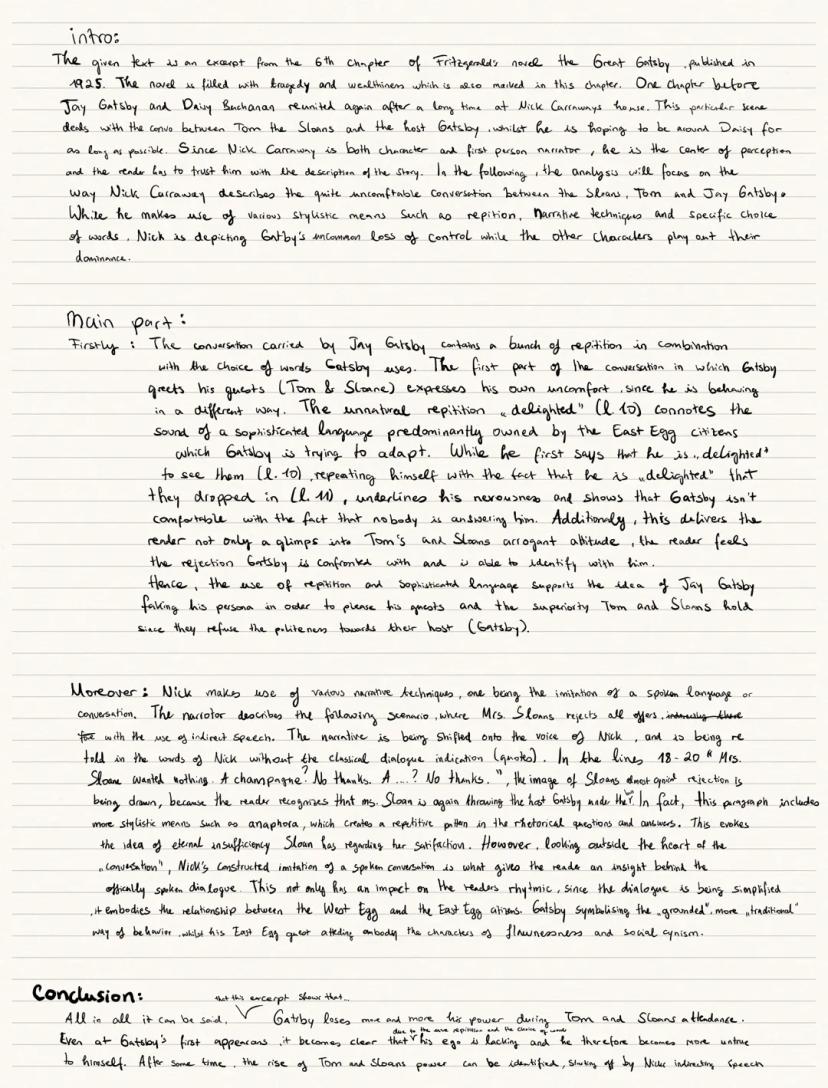 intro:
The given text is an excerpt from the 6th chapter of Fritzgerald's novel the Great Gatsby, published in
1925. The novel is filled with tragedy and wealthiness which is also marked in this chapter. One Chapter before
Jay Gatsby and Daisy Buchanan reunited again after a long time at Nick Carraways house. This particular scene
deals with the convo between Tom the Sloans and the host Gatsby, whilst he is hoping to be around Daisy for
as long as possible. Since Nick Carraway is both character and first person narrator, he is the center of perception
and the reader has to trust him with the description of the story. In the following, the analysis will focus on the
way Nick Carraway describes the quite uncomftable conversation between the Sloans, Tom and Jay Gatsby.
While he makes use of various stylistic means such as repition, Narrative techniques and specific choice
of words, Nick is depicting Gatby's uncommon loss of control while the other characters play out their
dominance.
Main part:
Firstly: The conversation carried by Jay Gatsby contains a bunch of repitition in combination
with the choice of words Gatsby uses. The first part of the conversation in which Gatsby
greets his guests (Tom & Sloane) expresses his own uncomfort, since he is behaving
in a different way. The unnatural repitition „delighted" (l. 10) connotes the
sound of a sophisticated language predominantly owned by the East Egg citizens
which Gatsby is trying to adapt. While he first says that he is „delighted"
to see them (l. 10), repeating himself with the fact that he is „delighted" that
they dropped in (l. 11), underlines his nervousness and shows that Gatsby isn't
comfortable with the fact that nobody is answering him. Additionally, this delivers the
reader not only a glimps into Tom's and Sloans arrogant attitude, the reader feels
the rejection Gatsby is confronted with and is able to identify with him.
Hence, the use of repitition and sophisticated language supports the idea of Jay Gatsby
faking his persona in order to please his guests and the superiority Tom and Sloans hold
since they refuse the politeness towards their host (Gatsby).
Moreover: Nick makes use of various narrative techniques, one being the imitation of a spoken language or
conversation. The narrator describes the following scenario, where Mrs. Sloans rejects all offers,
with the use of indirect speech. The narrative is being shifted onto the voice of Nick, and is being re
told in the words of Nick without the classical dialogue indication (quotes). In the lines 18-20 " Mrs.
Sloane wanted nothing. A champagne? No thanks. A ...? No thanks.", the image of Sloans almost rejection is
being drawn, because the reader recognizes that ms. Sloan is again throwing the host Gatsby under the In fact, this paragraph includes
more stylistic means such as anaphora, which creates a repetitive patten in the rhetorical questions and answers. This evokes
the idea of eternal insufficiency Sloan has regarding her satifaction. However, looking outside the heart of the
„conversation", Nick's constructed imitation of a spoken conversation is what gives the reader an insight behind the
offically spoken dialogue. This not only has an impact on the readers rhythmic, since the dialogue is being simplified
, it embodies the relationship between the West Egg and the East Egg citizens. Gatsby symbolising the „grounded", more „traditional"
way of behavior, whilst his East Egg guest embody the characters of and social cynism.
Conclusion:
that this excerpt shows that...
All in all it can be said, Gatsby loses more and more his power during Tom and Sloans attendance.
due to the same repitition and the choice of words
Even at Gatsby's first appearons, it becomes clear that his ego is lacking and he therefore becomes more untrue
to himself. After some time, the rise of Tom and Sloans power can be identified, starting off by Nicks indirecting speech